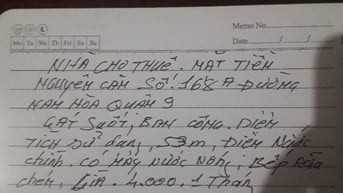 Memo No.
Mo Tu We Th Fr Sa Su
Date / /
NHÀ CHO THUÊ. MẶT TIỀN
NGUYÊN CĂN SỐ: 168A ĐƯỜNG
NAM HÒA QUẬN 9
GÁT SUỐT, BAN CÔNG. DIỆN
TÍCH SỬ DỤNG, 53m, ĐIỆN NƯỚC
chính. CÓ MÁY NƯỚC NÓNG, BẾP RỬA
chén, GIÁ. 4.000. 1 Tháng